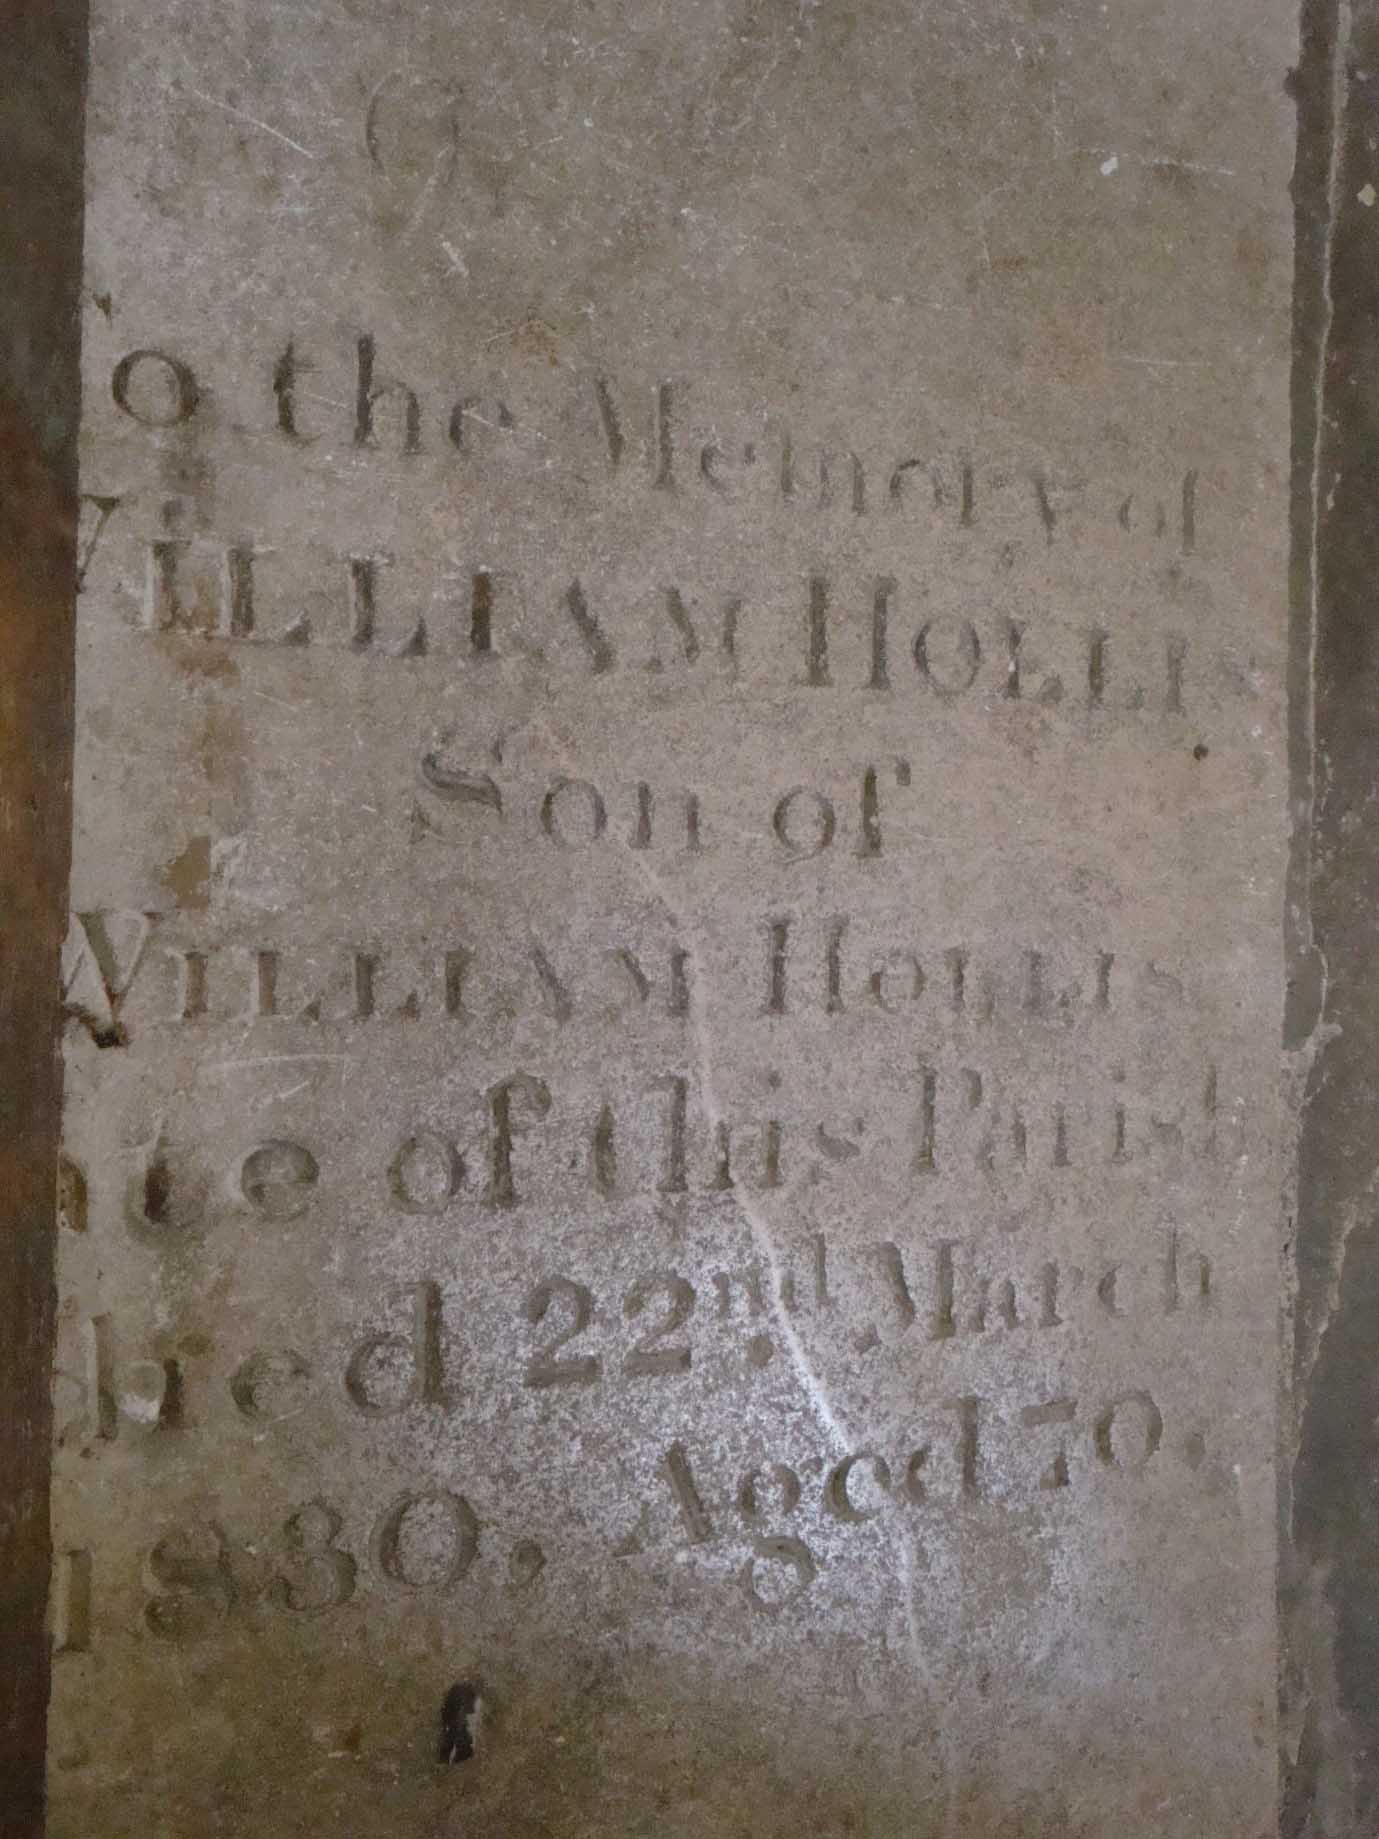 o the Memory of
WILLIAM HOLLIS
Son of
WILLIAM HOLLIS
ate of this Parish
died 22nd. March
1830, Aged 70.